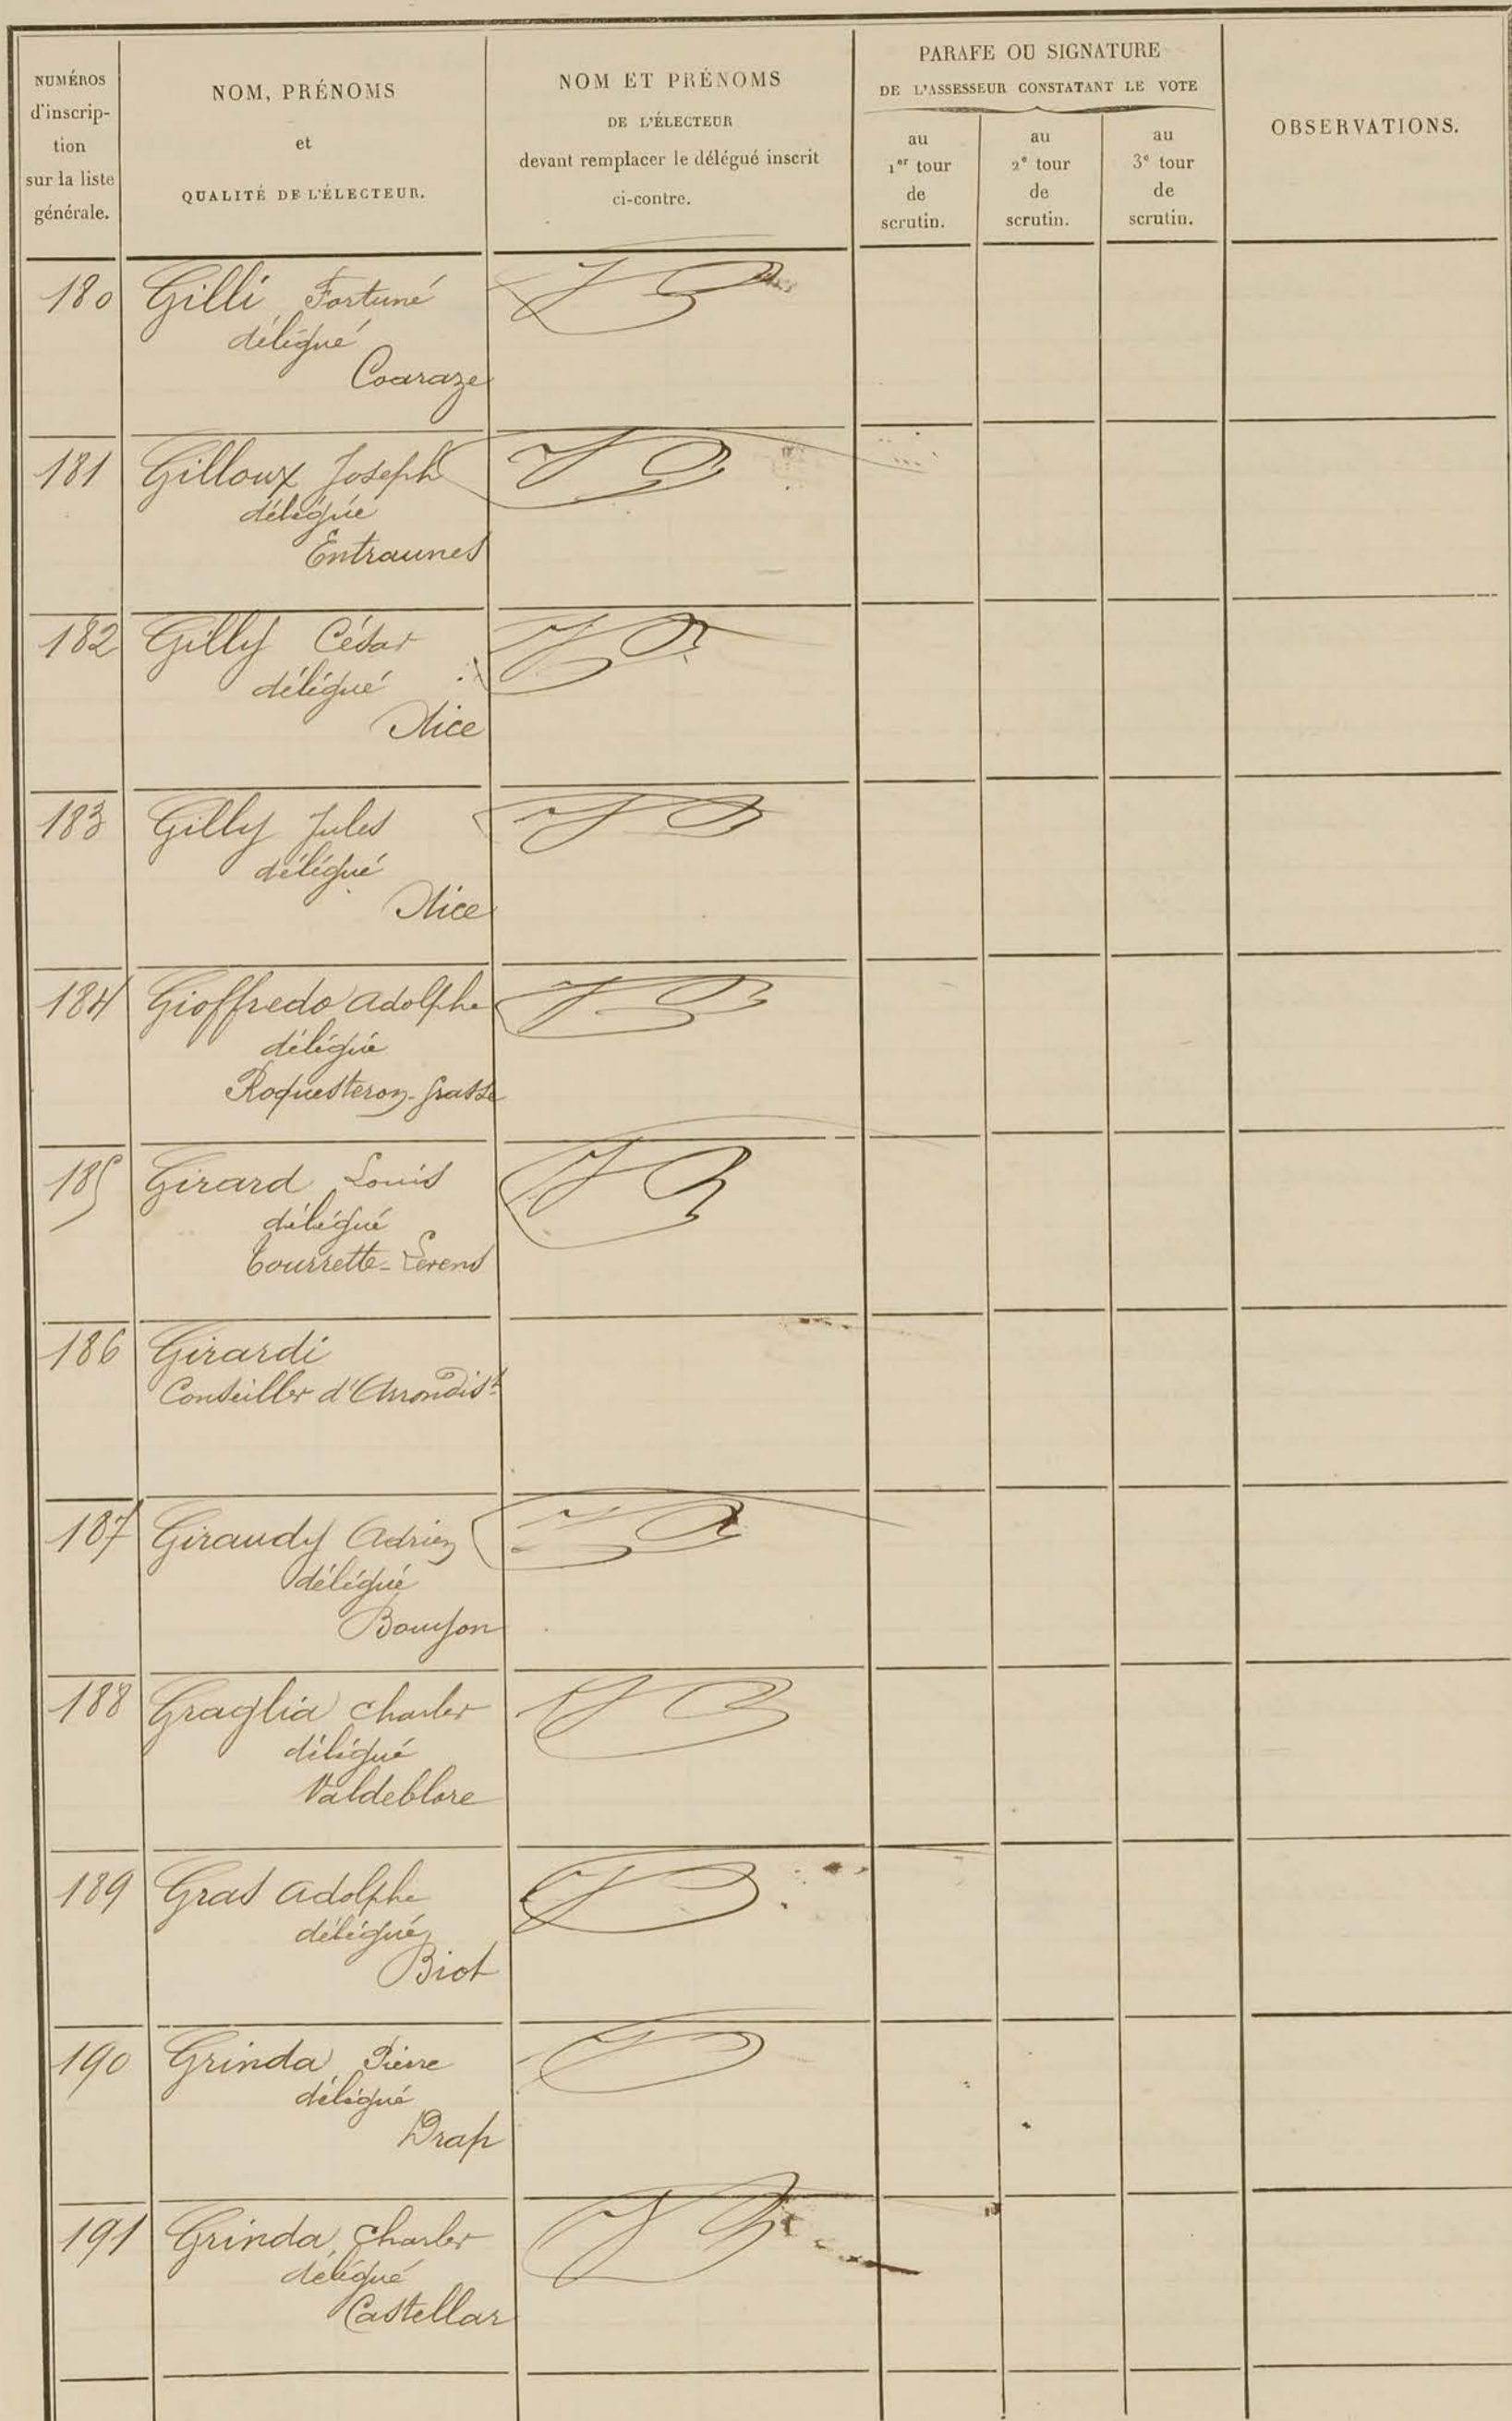 NUMÉROS
d'inscrip-
tion
sur la liste
générale.
NOM, PRÉNOMS
et
QUALITÉ DE L'ÉLECTEUR.
NOM ET PRÉNOMS
DE L'ÉLECTEUR
devant remplacer le délégué inscrit
ci-contre.
PARAFE OU SIGNATURE
DE L'ASSESSEUR CONSTATANT LE VOTE
au
1er tour
de
scrutin.
au
2e tour
de
scrutin.
au
3e tour
de
scrutin.
OBSERVATIONS.
180 Gilli Fortuné
délégué
Coaraze
181 Gilloux Joseph
délégué
Entraunes
182 Gilly César
délégué
Nice
183 Gilly Jules
délégué
Nice
184 Gioffredo Adolphe
délégué
Roquesteron-Grasse
185 Girard Louis
délégué
Tourrette-Levens
186 Girardi
Conseiller d'Arrondist
187 Giraudy Adrien
délégué
Bouyon
188 Graglia Charles
délégué
Valdeblore
189 Gras Adolphe
délégué
Biot
190 Grinda Pierre
délégué
Drap
191 Grinda, Charles
délégué
Castellar